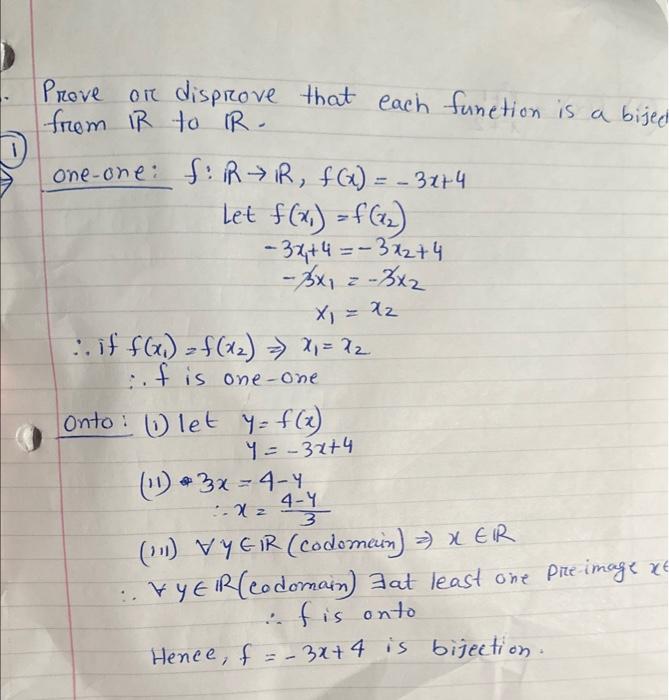 Prove or disprove that each function is a biject
from ℝ to ℝ.
1
one-one: f: ℝ → ℝ, f(x) = -3x+4
Let f(x₁) = f(x₂)
-3x₁+4 = -3x₂+4
-3x₁ = -3x₂
x₁ = x₂
∴ if f(x₁) = f(x₂) ⇒ x₁ = x₂
∴ f is one-one
Onto: (i) let y = f(x)
y = -3x+4
(ii) 3x = 4-y
∴ x = (4-y)/3
(iii) ∀ y ∈ ℝ (codomain) ⇒ x ∈ ℝ
∴ ∀ y ∈ ℝ (codomain) ∃ at least one pre-image x ∈
∴ f is onto
Hence, f = -3x+4 is bijection.